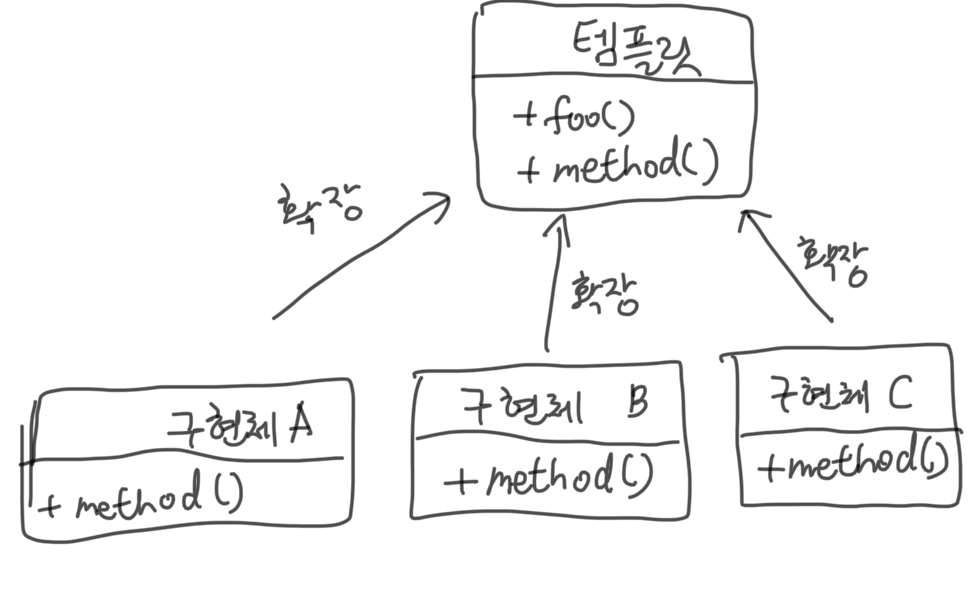 템플릿
+ foo()
+ method()
확장
확장
확장
구현체 A
+ method()
구현체 B
+ method()
구현체 C
+method()